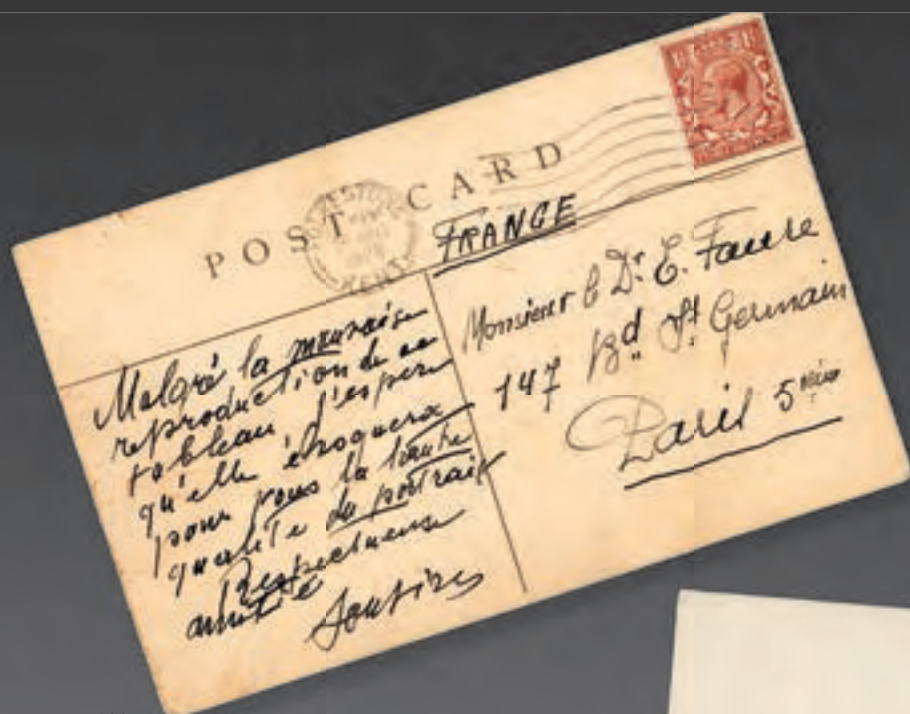 POST CARD
FRANCE
Malgré la mauvaise
reproduction de ce
tableau, j'espere
qu'elle évoquera
pour vous la haute
qualité du portrait
Respectueuse
amitié
Soutine
Monsieur le Dr. E. Faure
147 Bd. St. Germain
Paris 5ème